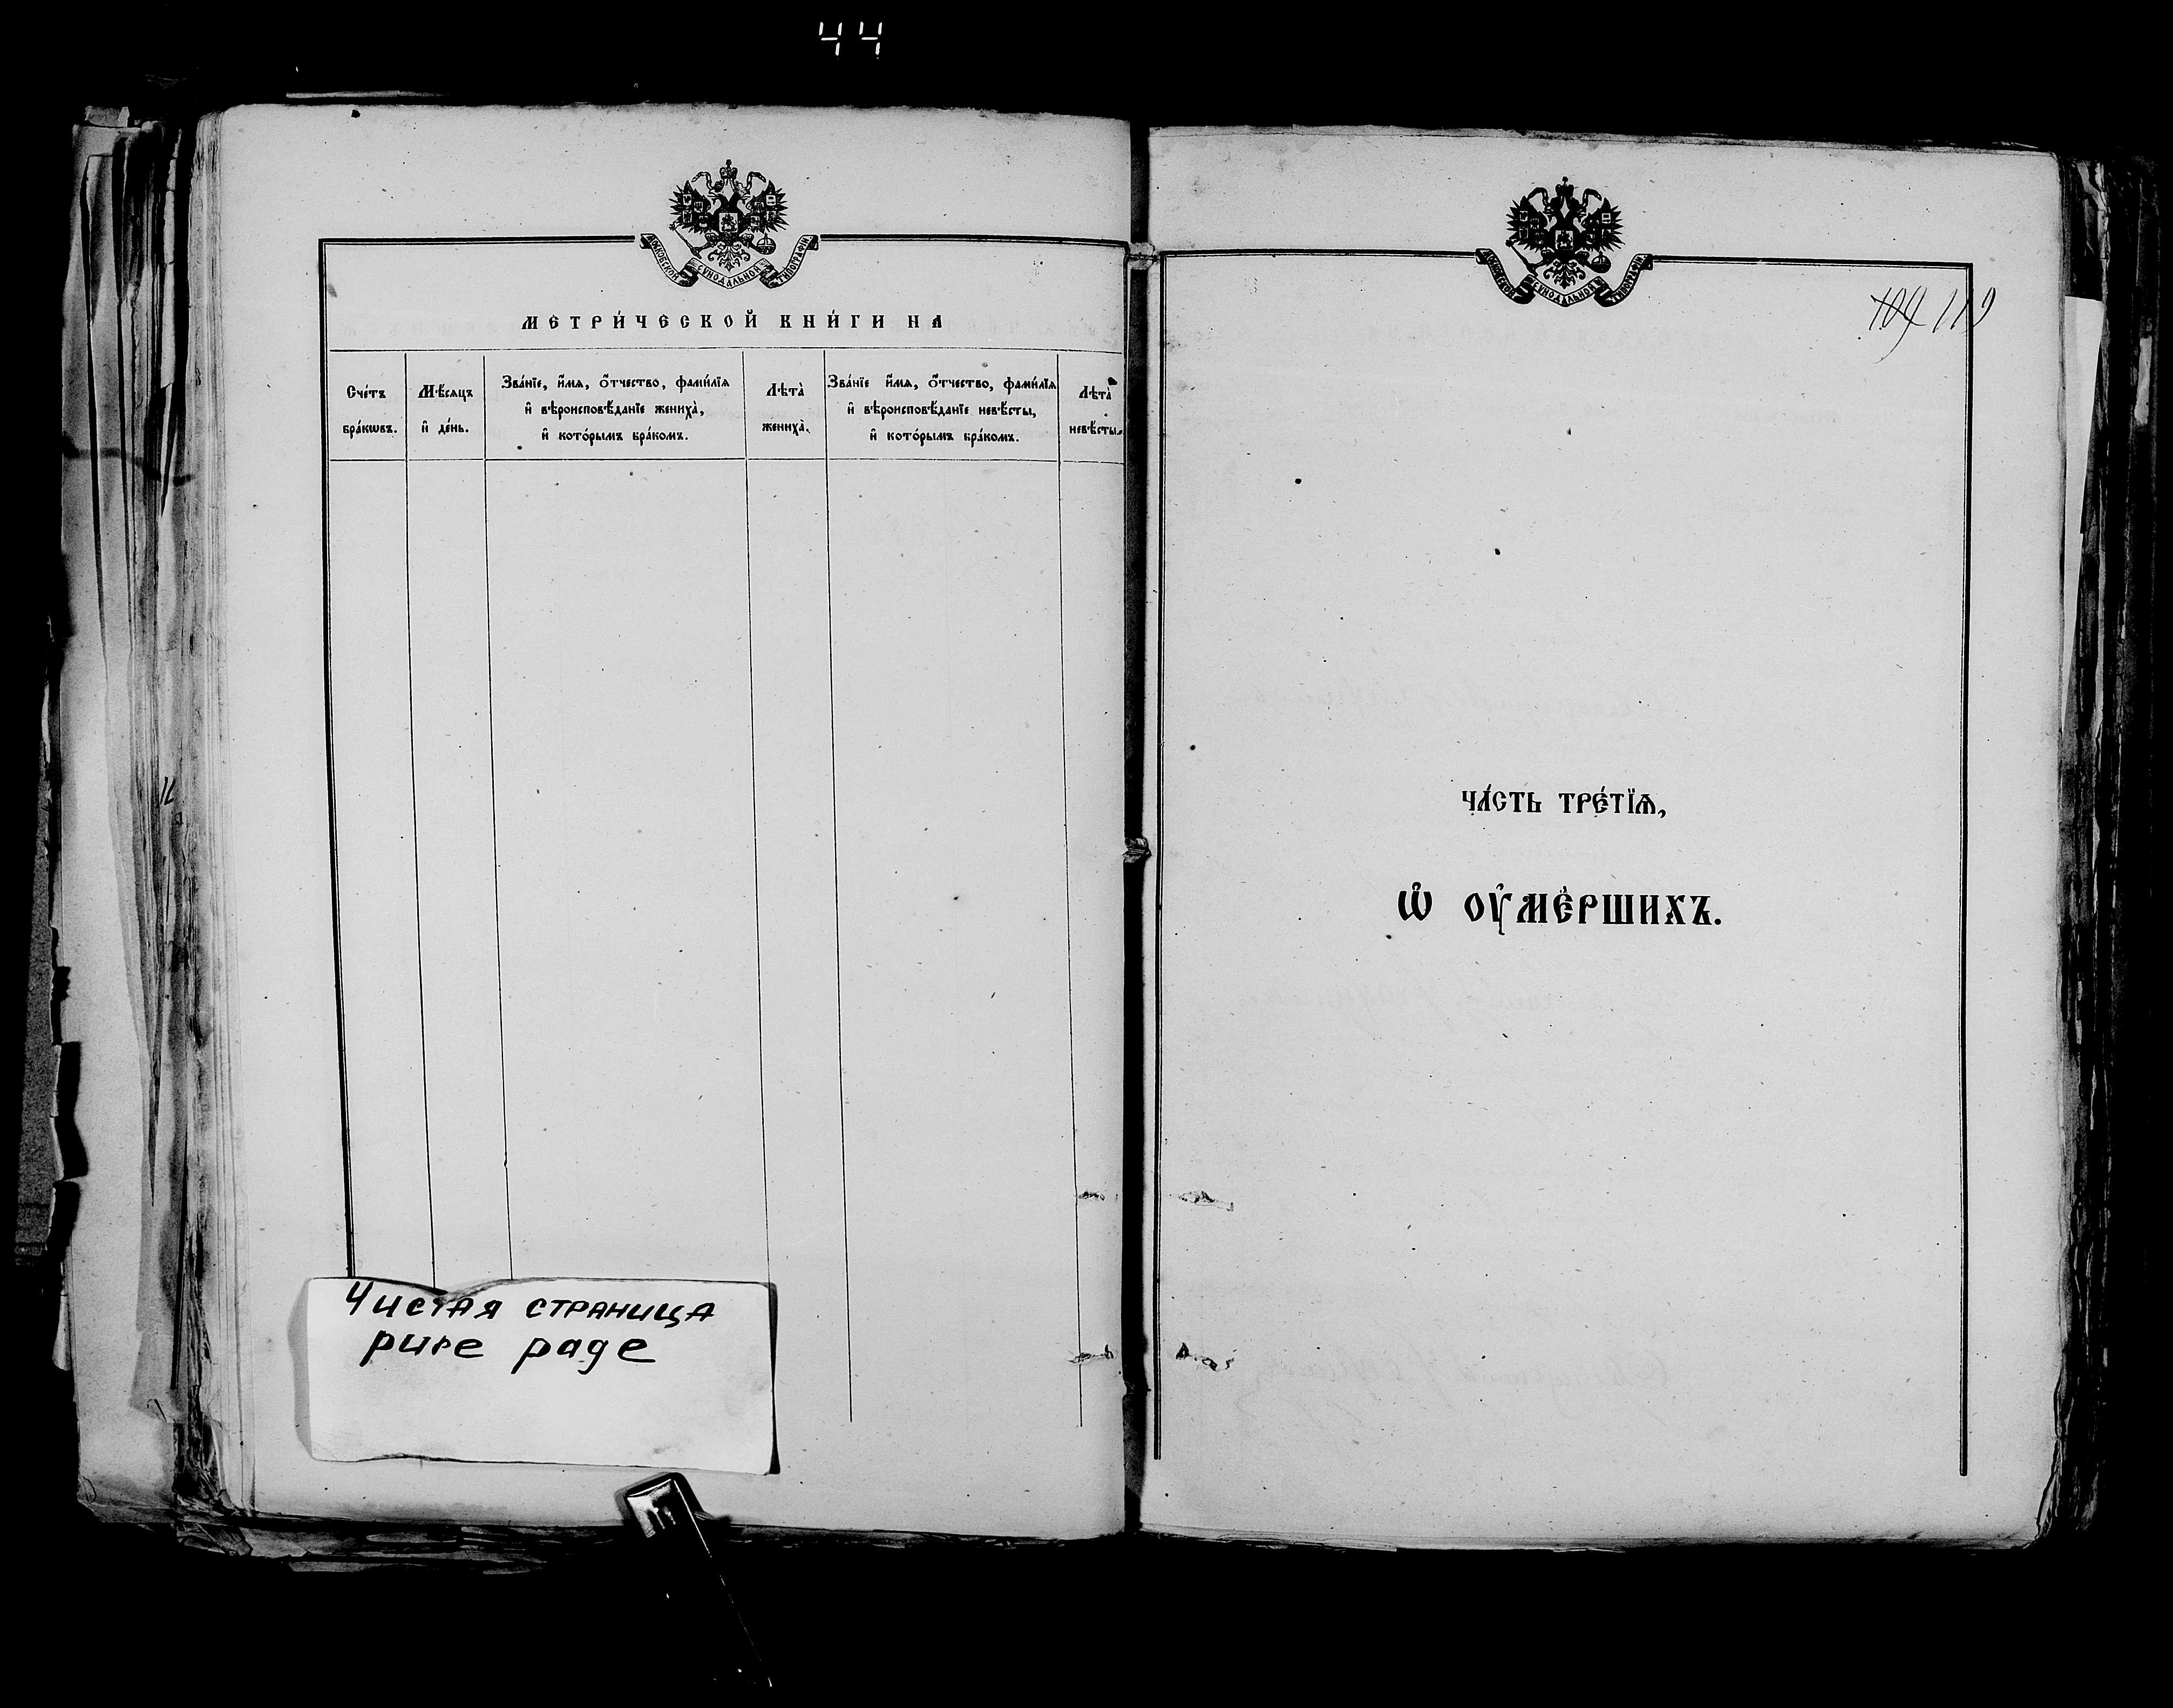 44
МОСКОВСКОЙ СУНОДАЛЬНОЙ ТИПОГРАФІИ
МЕТРИ́ЧЕСКОЙ КНИ́ГИ НА
Сче́тъ бра́кѡвъ.
Мѣ́сѧцъ и҆ де́нь.
Зва́нїе, и҆́мѧ, ѻ҆́тчество, фами́лїѧ
и҆ вѣроисповѣ́данїе жениха̀,
и҆ кото́рымъ бра́комъ.
Лѣта̀ жениха̀.
Зва́нїе и҆́мѧ, ѻ҆́тчество, фами́лїѧ
и҆ вѣроисповѣ́данїе невѣ́сты,
и҆ кото́рымъ бра́комъ.
Лѣта̀ невѣ́сты.
Чистая страница
pure page
МОСКОВСКОЙ СУНОДАЛЬНОЙ ТИПОГРАФІИ
109 119
ЧА́СТЬ ТРЕ́ТЇѦ,
Ѡ҆ ОУ҆МЕ́РШИХЪ.